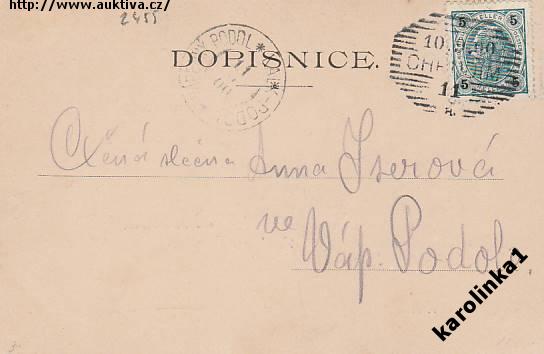 http://www.auktiva.cz/
2455
DOPISNICE.
5 5
10
CHR
11
5 5
PODOL
Ctěná slečna Anna Iserová
ve
Váp. Podol
karolinka1